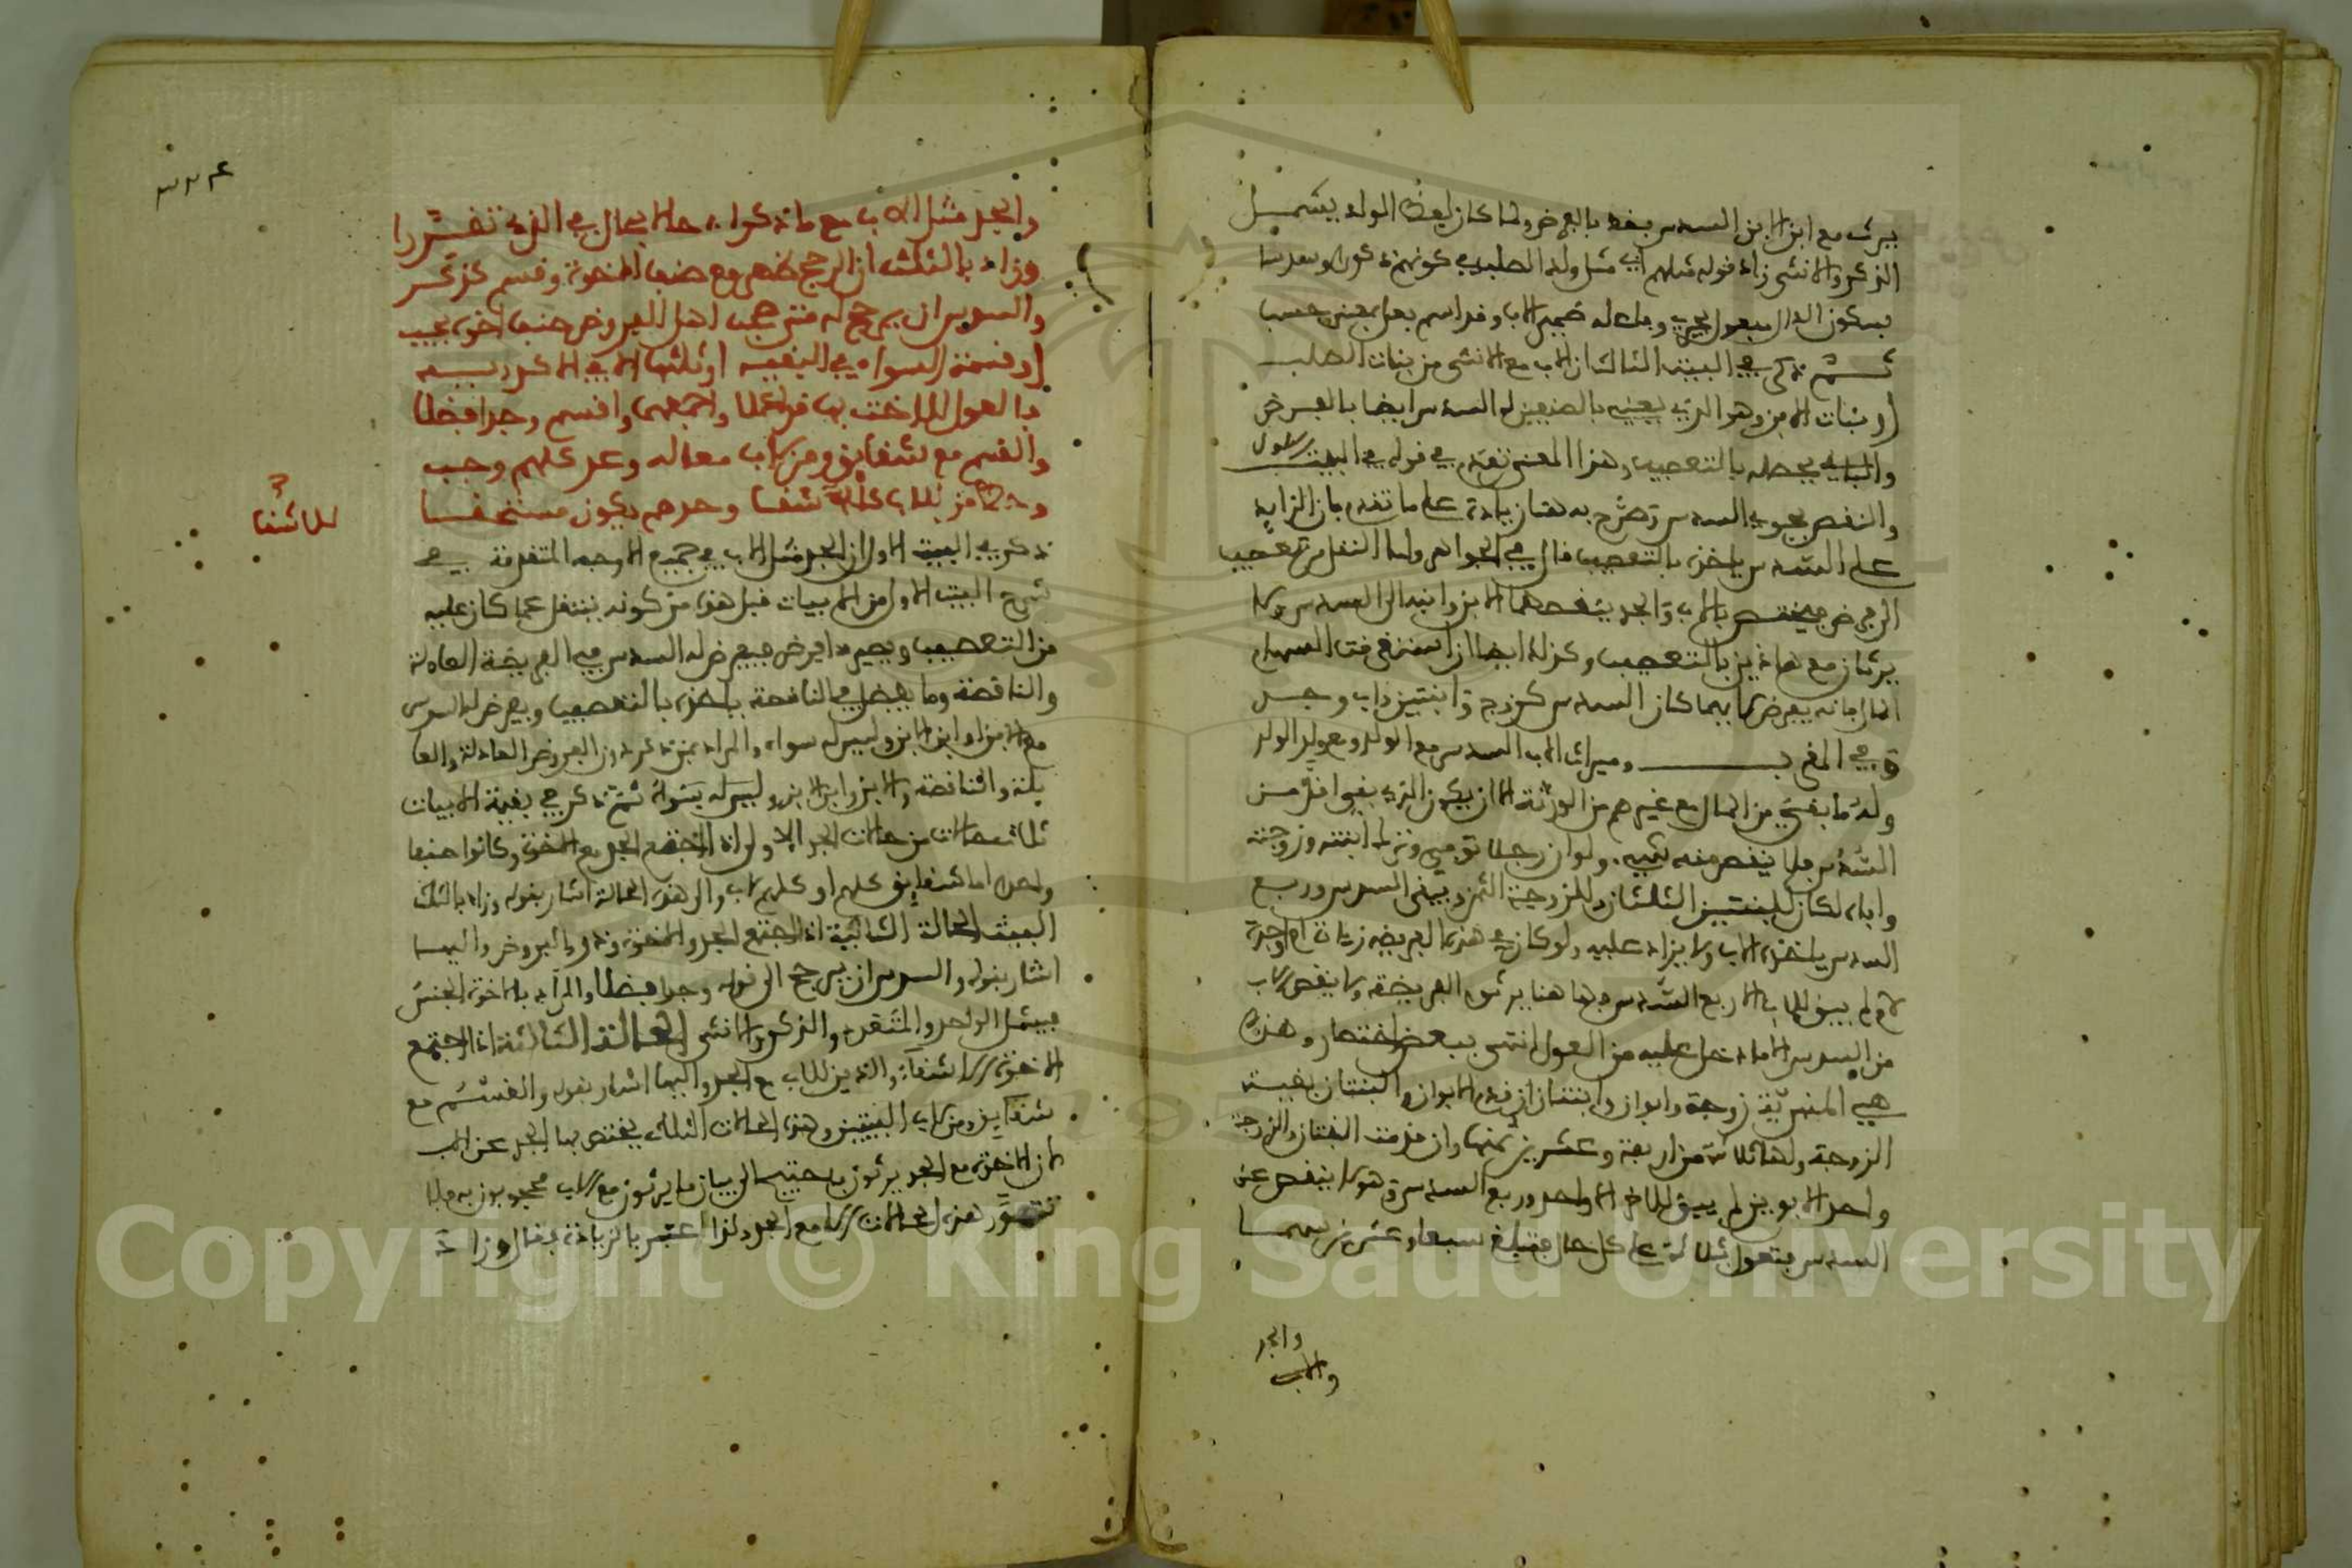 يرث مع ابن الابن السدس فقط بالفرض ولما كان لفظ الولد يشمل
الذكر والانثى زاد قوله مثلهم اي مثل ولد الصلب في كونهم ذكورا وسدسا
بسكون الدال مفعول يحوي وما له ضمير الاب وقد اسم فعل بمعنى حسب
ثم ذكر في البيت الثالث ان الاب مع الانثى من بنات الصلب
او بنات الابن وهو الذي يعنيه بالصنفين له السدس ايضا بالفرض
والباقي يحصله بالتعصيب وهذا المعنى تقدم في قوله في البيت الاول
والنقص يحوي السدس وصرح به هنا زيادة على ما تقدم بان الزايد
على السدس ياخذه بالتعصيب قال في الجواهر واما النقل من تعصيب
الى فرض فيختص بالاب والجد ينقصهما الابن وابنه الى السدس ولا
يرثان مع هاذين بالتعصيب وكذلك ايضا ان استغرقت السهام
المال فانه يفرض لهما كان السدس كزوج وابنتين واب وجد
وفي المغرب وميراث الاب السدس مع الولد ومع ولد الولد
وله ما بقي من المال مع غيرهم من الورثة الا ان يكون الذي بقي اقل من
السدس فلا ينقص منه شيء ولو ان رجلا توفي وترك ابنته وزوجته
واباه لكان للبنتين الثلثان وللزوجة الثمن وبقي السدس وربع
السدس ياخذه الاب ولا يزاد عليه ولو كان في هذه الفريضة زيادة ام او جدة
لم يبق للاب الا ربع السدس فها هنا يرثون الفريضة ولا ينقص الاب
من السدس الا ما دخل عليه من العول انتهى ببعض اختصار وهذه
هي المنبرية زوجة وابوان وابنتان ان قدم الابوان والبنتان بقيت
الزوجة ولها ثلاثة من اربعة وعشرين ثمنها وان قدمت البنتان والزوجة
واحد الابوين لم يبق للاخر الا واحد وربع السدس وهو لا ينقص عن
السدس فتعول بثلاثة على كل حال فتبلغ سبعا وعشرين سهما
والجد
والاب
والجد مثل الاب مع ما ذكروا حالا بحال في الذي تقررا
وزاد بالثلث ان الرجح ظهر مع صنف الاخوة وقسم كذكر
والسدس ان يرجح له متى صحب اهل الفروض صنف اخوة يجب
او قسمة السواء في البقية او ثلثها الا في الاكدرية
بالعول للاخت بها قد اعملا واجمعهما واقسم وجدا فضلا
والقسم مع شقايق ومن لاب معا له وعد كلهم وجب
وحظ من للاب شقا وحدهم يكون مستخلصا
للاشقا
ذكر في البيت الاول ان الجد مثل الاب في جميع الاوجه المتقدمة في
شرح البيت الاول من الابيات قبل هذه من كونه ينتقل عما كان عليه
من التعصيب ويصير ذا فرض فيفرض له السدس في الفريضة العادلة
والناقصة وما يفضل في الناقصة ياخذه بالتعصيب ويفرض له السدس
مع الابن او ابن الابن وليس له سواه والمراد بمن ذكر ذوي الفروض العادلة والعا
يلة والناقصة والابن وابن الابن وليس له سواه ثم ذكر في بقية الابيات
ثلاث حالات من حالات الجد الاولى اذا اجتمع الجد مع الاخوة وكانوا صنفا
واحدا اما شقايق كلهم او كلهم لاب والى هذه الحالة اشار بقوله وزاد بالثلث
البيت الحالة الثانية اذا اجتمع الجد والاخوة وذو الفروض واليها
اشار بقوله والسدس ان يرجح الى قوله وجدا فضلا والمراد بالاخوة الجنس
فيشمل الواحد والمتعدد والذكور والانثى الحالة الثالثة اذا اجتمع
الاخوة الاشقاء والذين للاب مع الجد واليها اشار بقوله والقسم مع
شقايق ومن لاب البيتين وهذه الحالات الثلاث يختص بها الجد عن الاب
لان الاخوة مع الجد يرثون فاحتيج الى بيان ما يرثون مع الاب محجوبون به فلا
تتصور هذه الحالات الا مع الجد ولذا اعتبر بالزيادة فقال وزاد